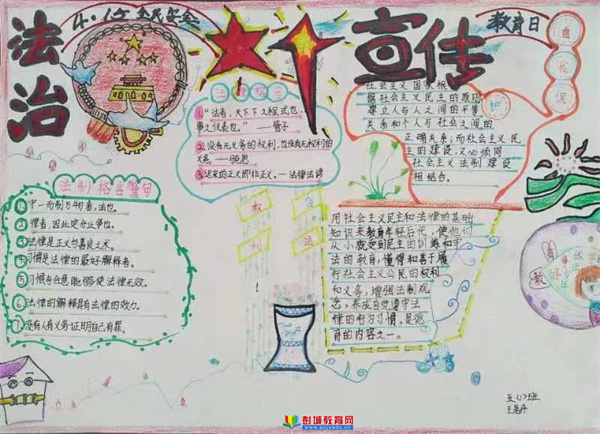 法治
4.15全民安全
宣传
教育日
自
我
保
1."法者,天下之程式也,
事之仪表也。" ——管子
2.没有无义务的权利,也没有无权利的
义务。——马克思
3.迟来的正义即非正义。——法律法谚
社会主义国家根
据社会主义民主的原则
建立人与人之间的平等
关系和个人与社会之间的
正确关系;而社会主义民
主的建设,又必须同
社会主义法制建设
相结合。
法制格言警句
1.守一而制万物者,法也。
2.律者,因此定分止争也。
3.法律是正义与善良之术。
4.习惯是法律的最好解释者。
5.习惯与合意能够使法律无效。
6.法律的解释具有法律的效力。
7.没有人有义务证明自己有罪。
权
利
法
用社会主义民主和法律的基础
知识来教育年轻后代,使他们
从小就受到民主的训练和守
法的教育,懂得和善于履
行社会主义公民的权利
和义务,增强法制观
念,养成自觉遵守法
律的好习惯,是德
育的内容之一。
教
育
五(1)班
彭城教育网